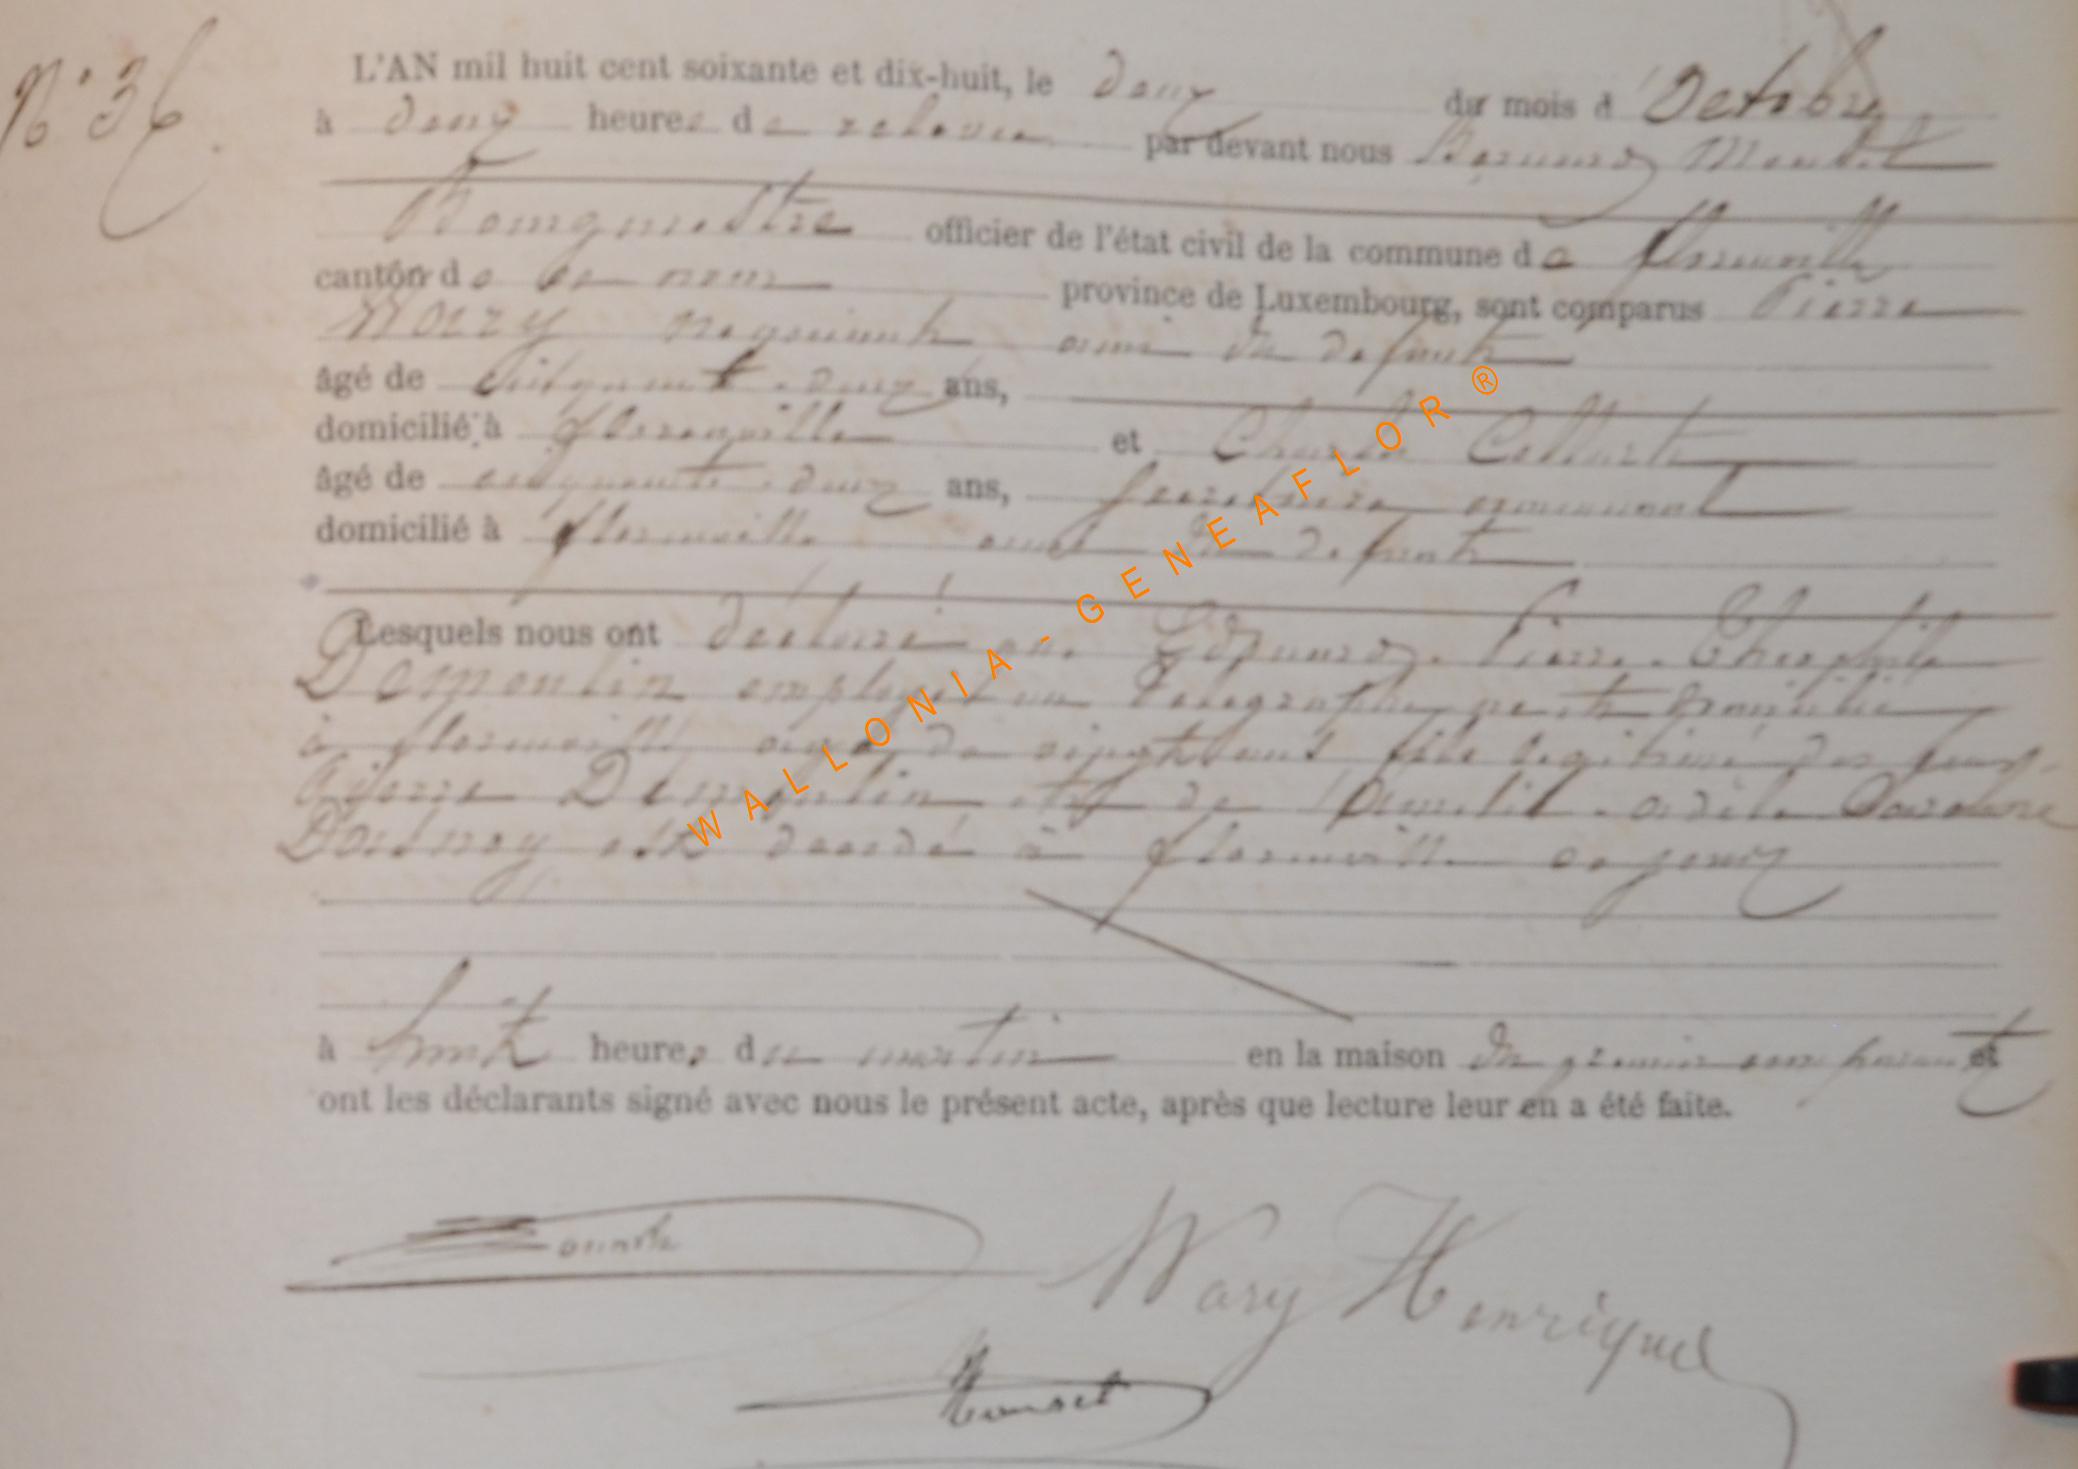 N° 36.
L'AN mil huit cent soixante et dix-huit, le deux du mois d'Octobre
à deux heures de relevée par devant nous Bernard
Bourgmestre officier de l'état civil de la commune de florenville
canton de ce nom province de Luxembourg, sont comparus Pierre
Wary négociant ami du défunt
âgé de cinquante-deux ans,
domicilié à florenville et Charles Collart
âgé de cinquante-deux ans, secrétaire communal
domicilié à florenville ami du défunt
Lesquels nous ont déclaré que Edouard Pierre Théophile
Demoulin employé au télégraphe domicilié
à florenville âgé de vingt ans fils légitime des feus
Pierre Demoulin et de Adèle
est décédé à florenville ce jour
à huit heures du matin en la maison du premier comparant et
ont les déclarants signé avec nous le présent acte, après que lecture leur en a été faite.
Wary Henrique
WALLONIA - GENEAFLOR ®